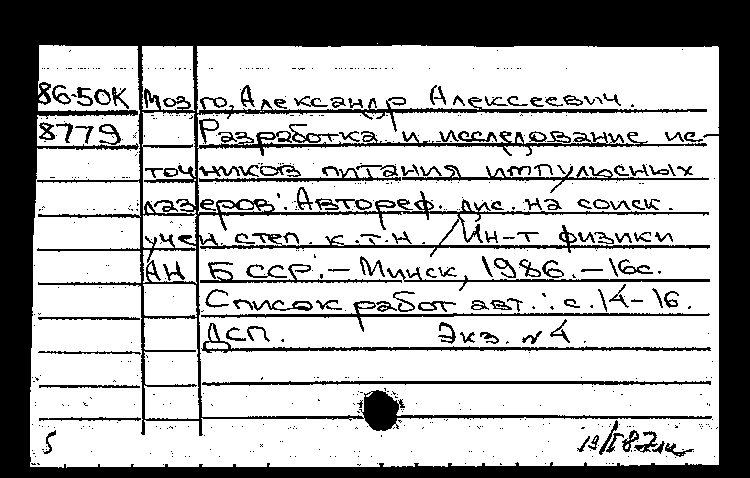 86-50К Мозго, Александр Алексеевич.
8779 Разработка и исследование ис-
точников питания импульсных
лазеров: Автореф. дис. на соиск.
учен. степ. к.т.н. / Ин-т физики
АН БССР. - Минск, 1986. - 16с.
Список работ авт.: с. 14-16.
ДСП. Экз. №4.
5